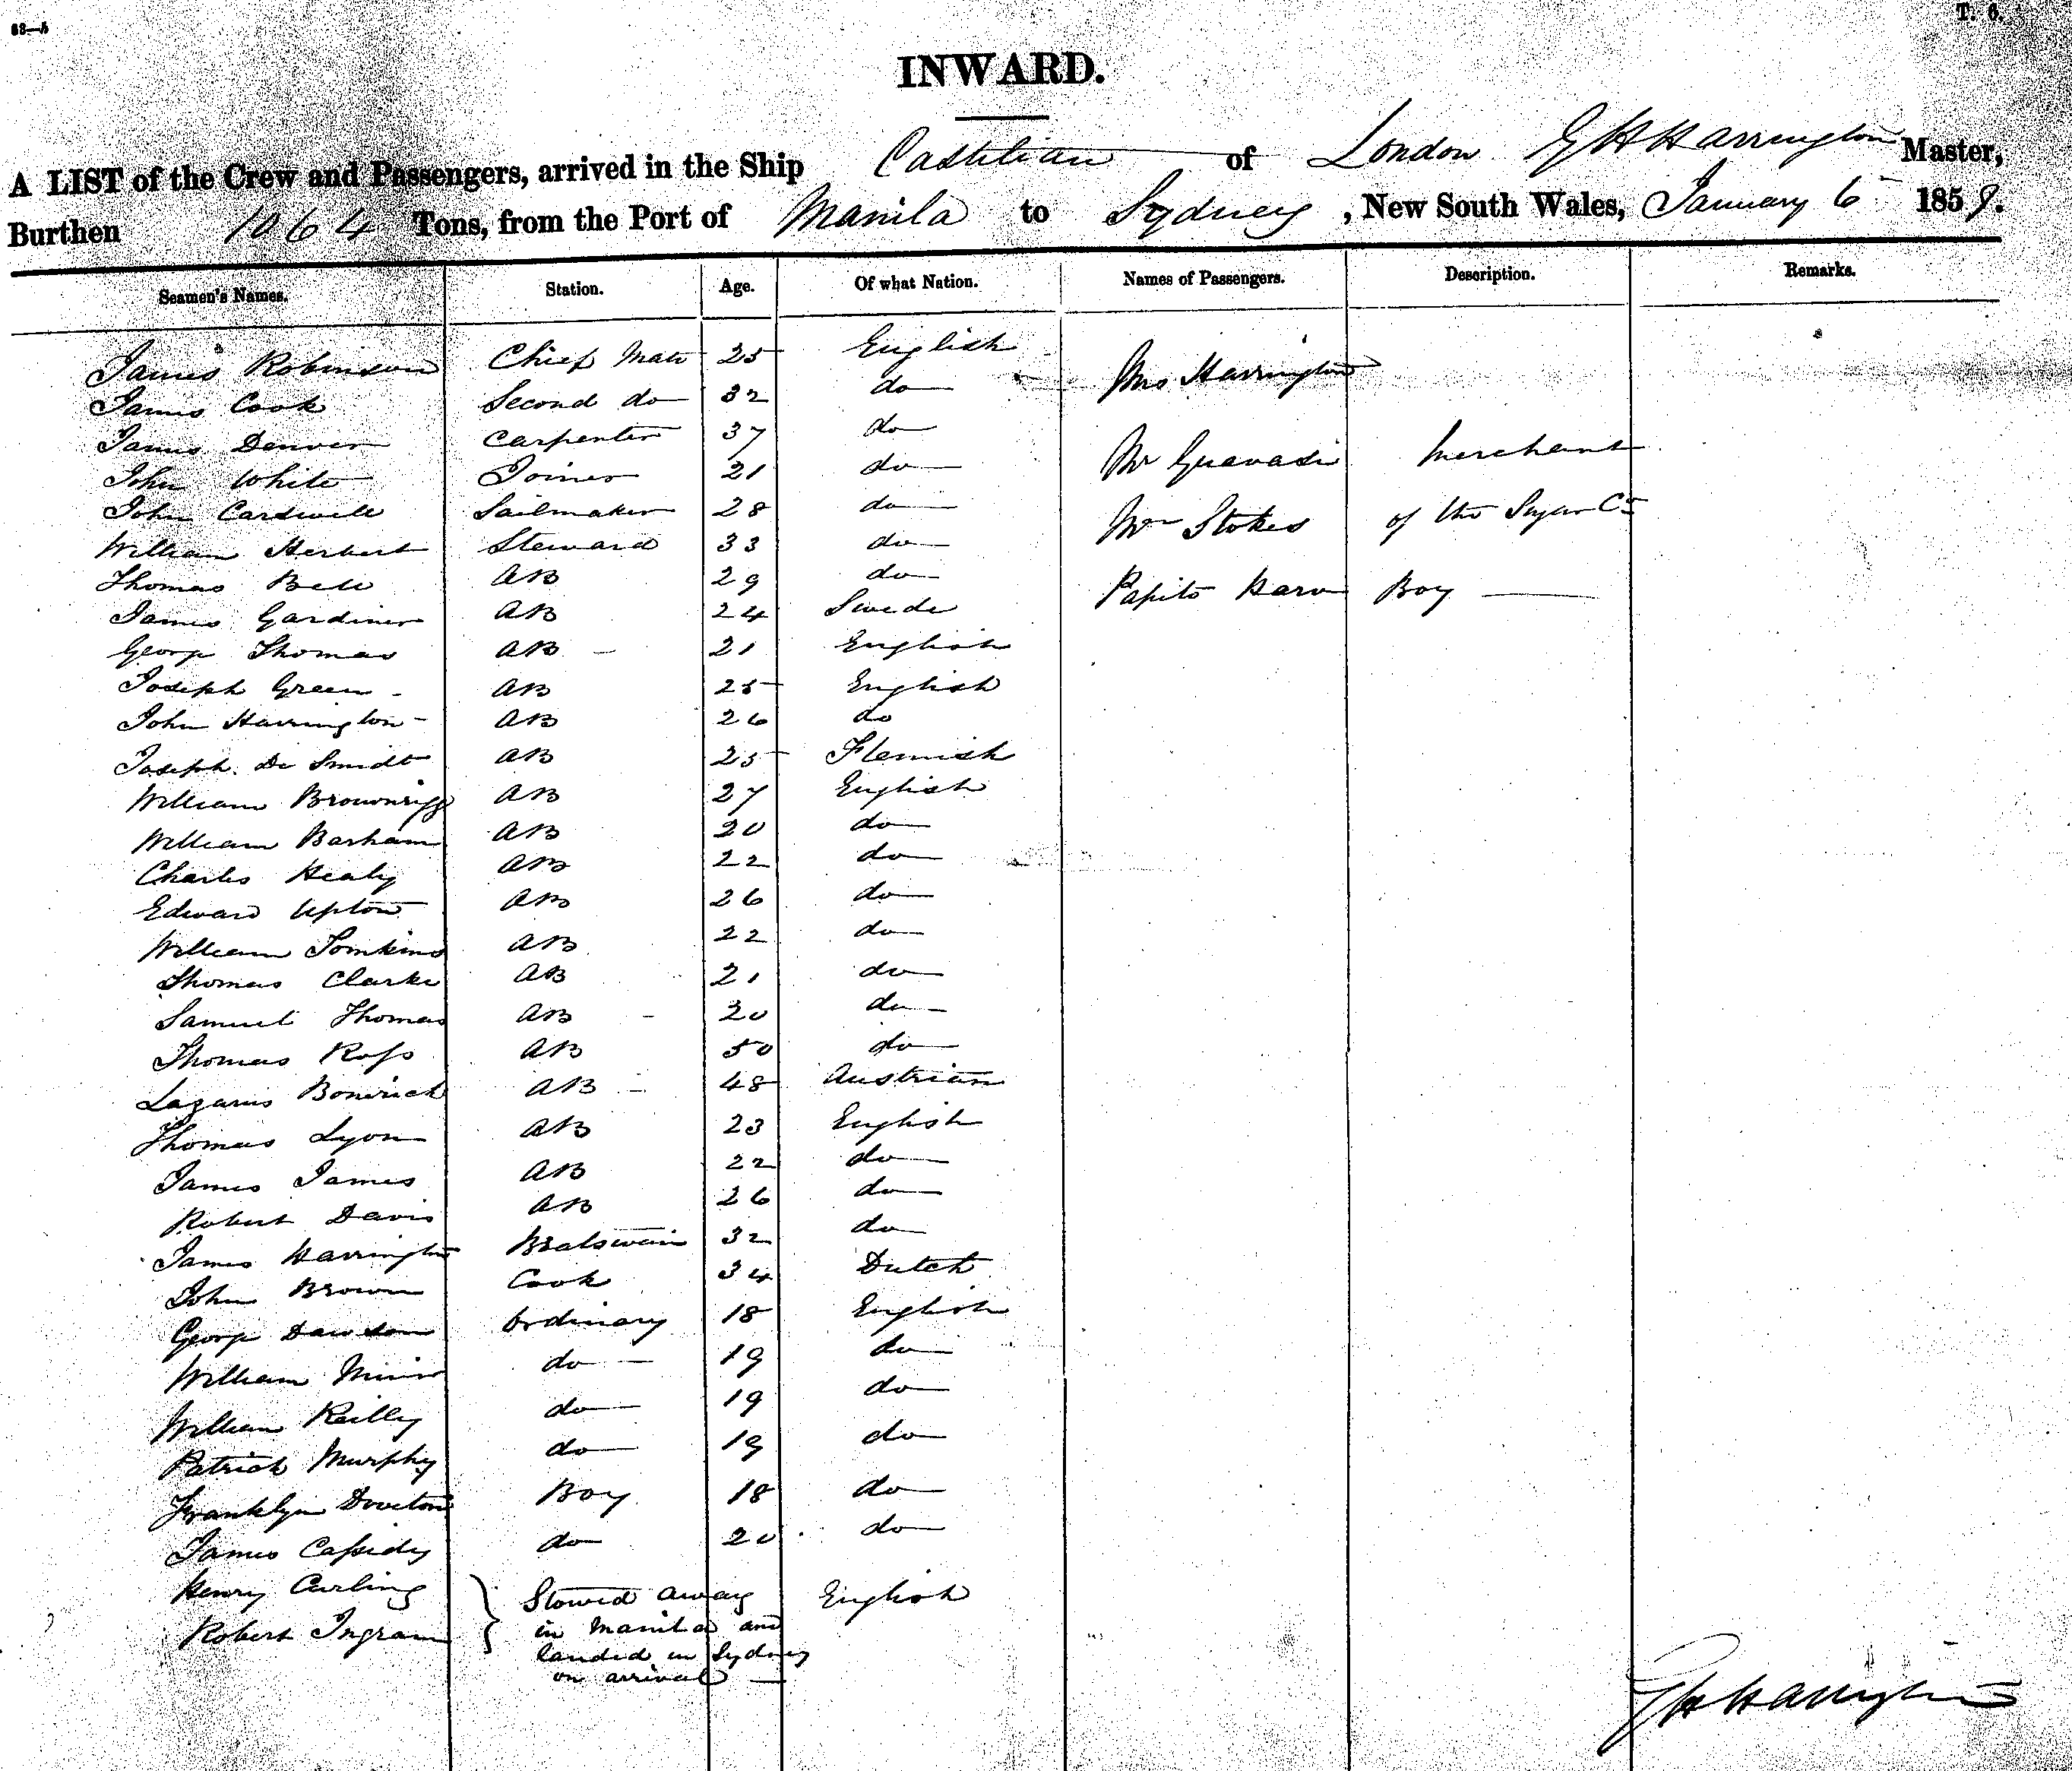 T. 6.
INWARD.
A LIST of the Crew and Passengers, arrived in the Ship Castilian of London G H Harrington Master,
Burthen 1064 Tons, from the Port of Manila to Sydney, New South Wales, January 6 1859.
Seamen's Names. Station. Age. Of what Nation. Names of Passengers. Description. Remarks.
James Robinson Chief Mate 25 English Mrs Harrington
James Cook Second do 32 do
James Denver Carpenter 37 do
John White Joiner 21 do Mr Merchant
John Cardwell Sailmaker 28 do
William Herbert Steward 33 do Mr Stokes of the Sugar Co
Thomas Bell AB 29 do
James Gardiner AB 24 Swede Papito Boy
George Thomas AB 21 English
Joseph Green AB 25 English
John Harrington AB 26 do
Joseph De Smidt AB 25 Flemish
William Brownrigg AB 27 English
William Barham AB 20 do
Charles Healy AB 22 do
Edward Upton AB 26 do
William Tomkins AB 22 do
Thomas Clarke AB 21 do
Samuel Thomas AB 20 do
Thomas Ross AB 50 do
Lazarus AB 48 Austrian
Thomas Lyon AB 23 English
James James AB 22 do
Robert Davis AB 26 do
James Harrington Boatswain 32 do
John Brown Cook 34 Dutch
George Dawson Ordinary 18 English
William do 19 do
William Reilly do 19 do
Patrick Murphy do 19 do
Franklyn Doveton Boy 18 do
James Cassidy do 20 do
Henry Curling } Stowed away English
Robert Ingram in Manila and
landed in Sydney
on arrival
G H Harrington